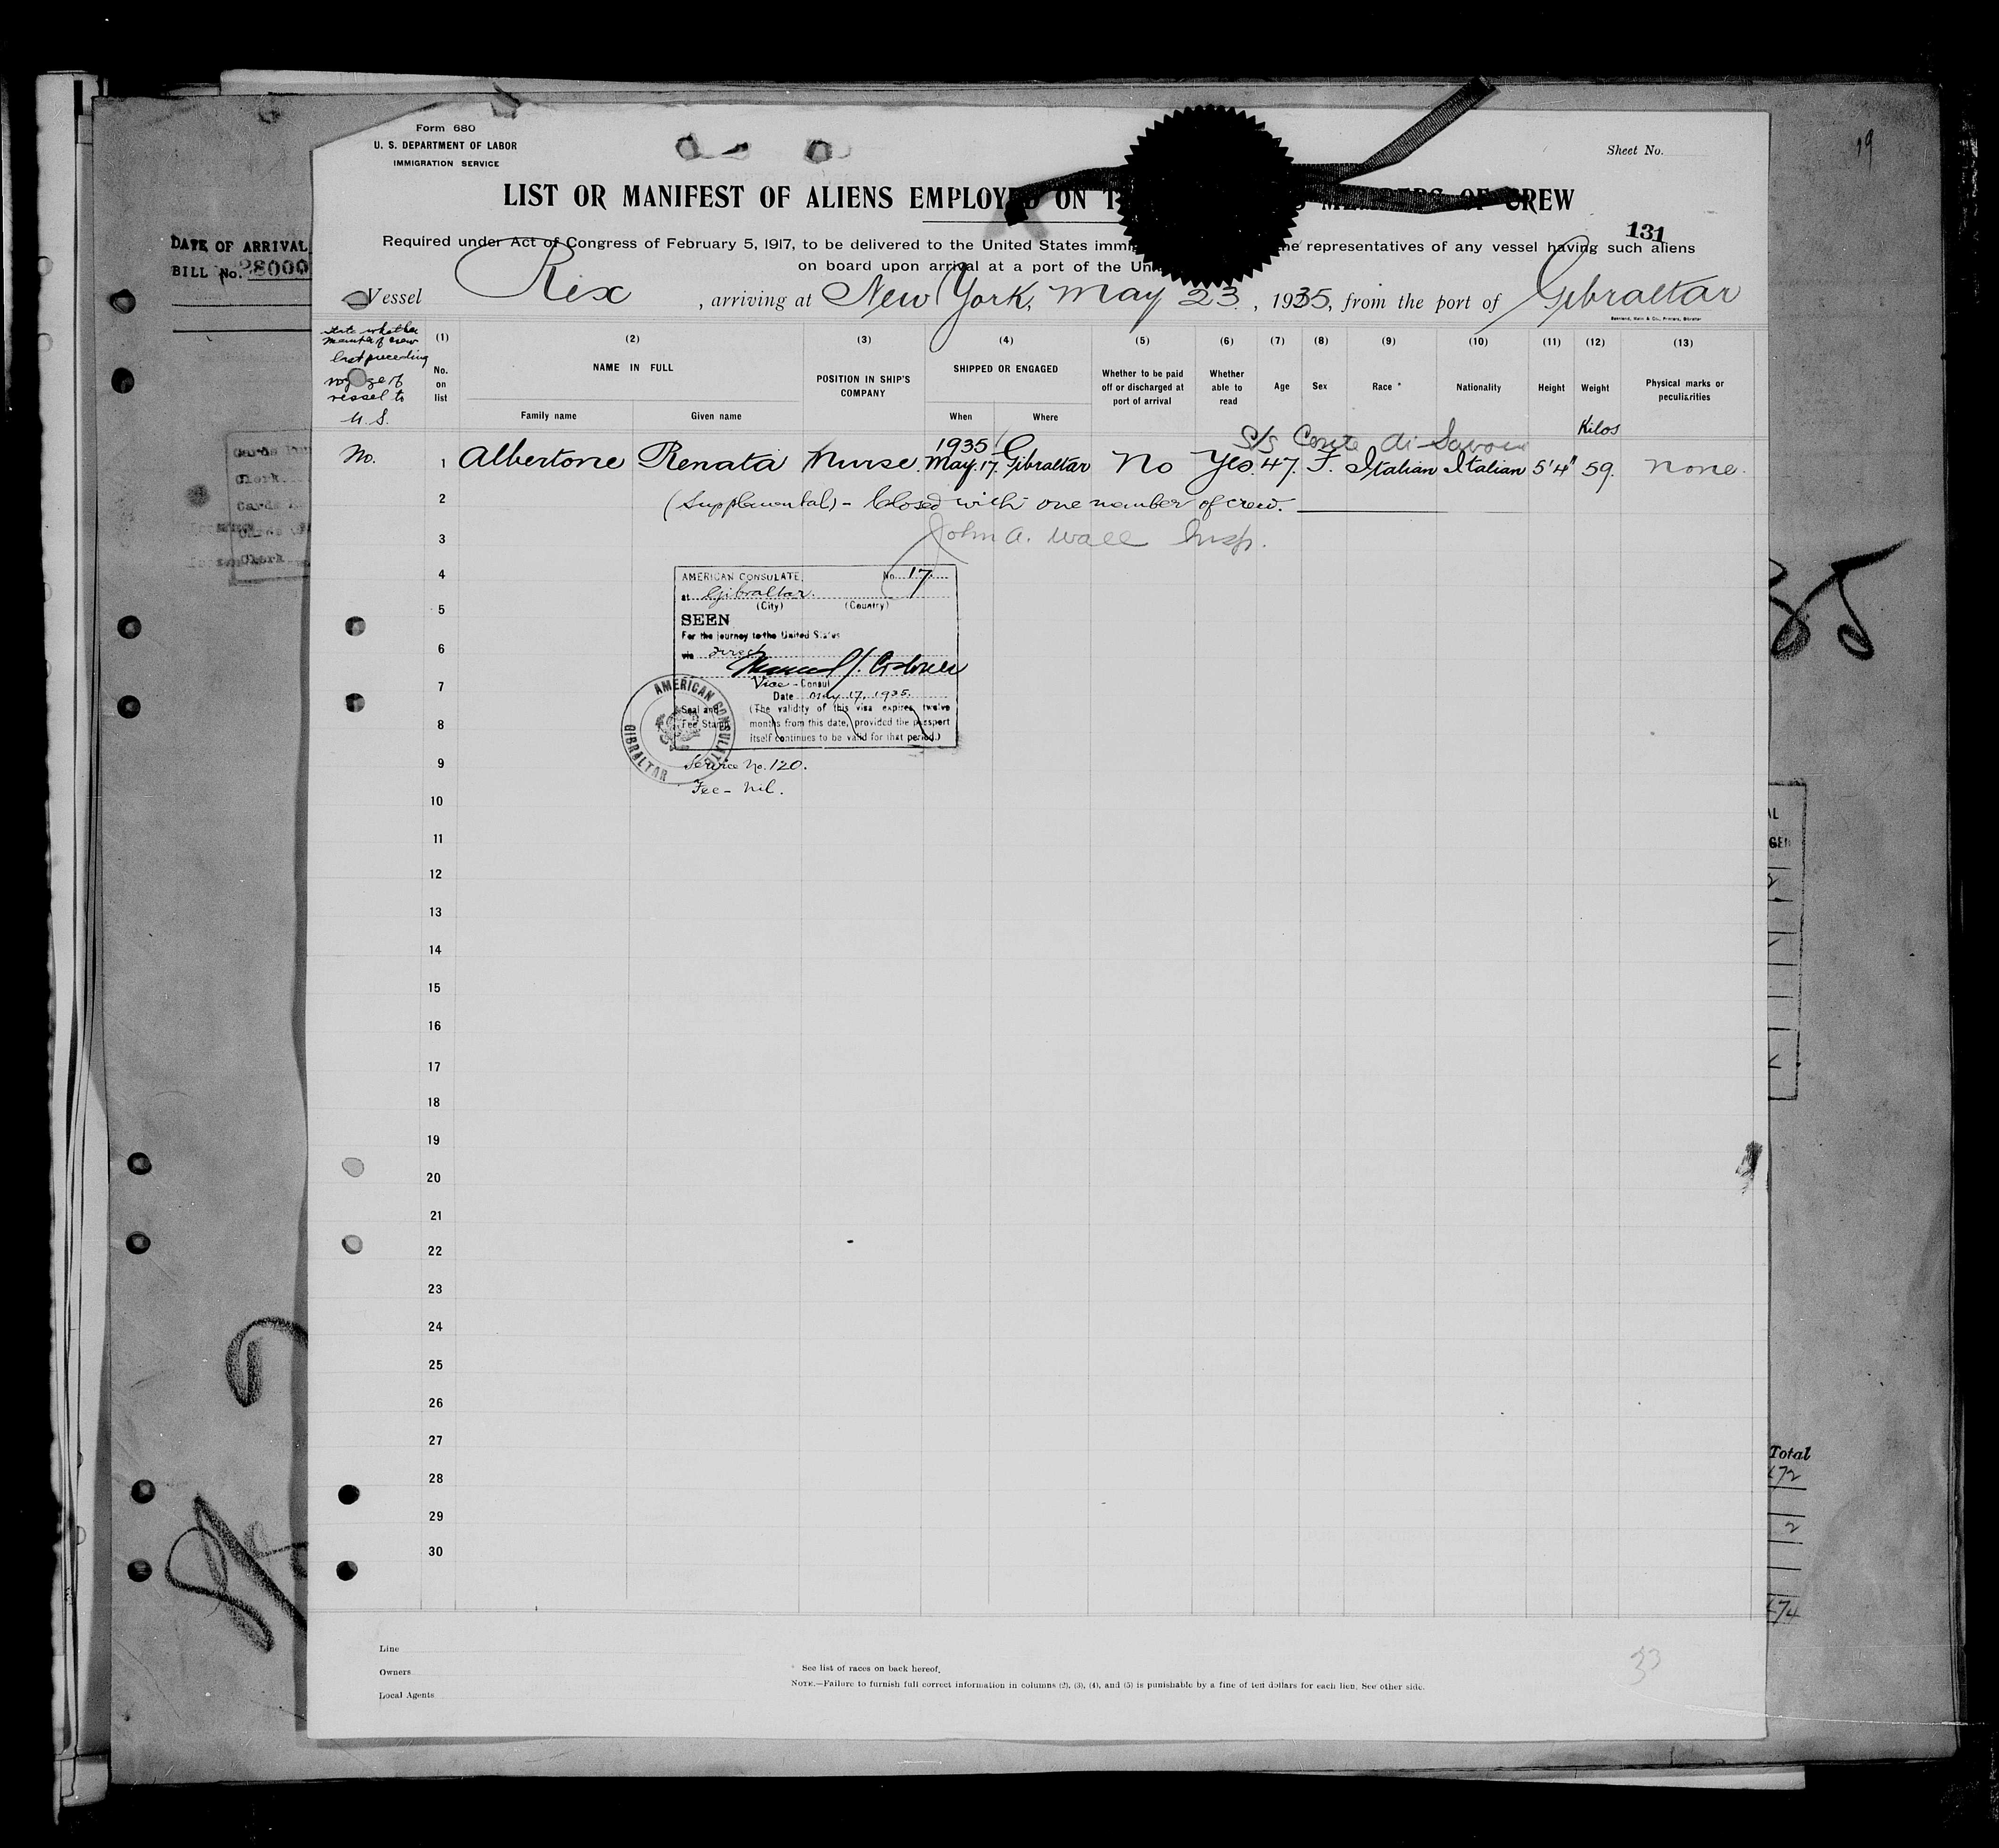 Form 680
U. S. DEPARTMENT OF LABOR
IMMIGRATION SERVICE
Sheet No.
19
LIST OR MANIFEST OF ALIENS EMPLOYED ON CREW
131
Required under Act of Congress of February 5, 1917, to be delivered to the United States representatives of any vessel having such aliens
on board upon arrival at a port of the
DATE OF ARRIVAL
BILL No. 28000
Vessel Rex, arriving at New York, May 23, 1935, from the port of Gibraltar
State whether member of crew last preceding voyage of vessel to U. S.
(1) (2) (3) (4) (5) (6) (7) (8) (9) (10) (11) (12) (13)
No. on list
NAME IN FULL
Family name
Given name
POSITION IN SHIP'S COMPANY
SHIPPED OR ENGAGED
When
Where
Whether to be paid off or discharged at port of arrival
Whether able to read
Age
Sex
Race *
Nationality
Height
Weight
Kilos
Physical marks or peculiarities
S/S Conte di Savoia
No. 1 Albertone Renata Nurse. 1935 May. 17. Gibraltar No Yes. 47. F. Italian Italian 5'4" 59. none.
2 (Supplemental) - Closed with one member of crew.
3 John A. Wall Insp.
4
5
6
7
8
9
10
11
12
13
14
15
16
17
18
19
20
21
22
23
24
25
26
27
28
29
30
AMERICAN CONSULATE, No. 17
at Gibraltar.
(City) (Country)
SEEN
For the journey to the United States
via Direct
Vice-Consul
Date May 17, 1935.
Seal and Fee Stamp
(The validity of this visa expires twelve
months from this date, provided the passport
itself continues to be valid for that period.)
AMERICAN CONSULATE GIBRALTAR
Service No. 120.
Fee - Nil.
Clerk
Total
472
2
474
Line
Owners
Local Agents
* See list of races on back hereof.
NOTE.—Failure to furnish full correct information in columns (2), (3), (4), and (5) is punishable by a fine of ten dollars for each lien. See other side.
33